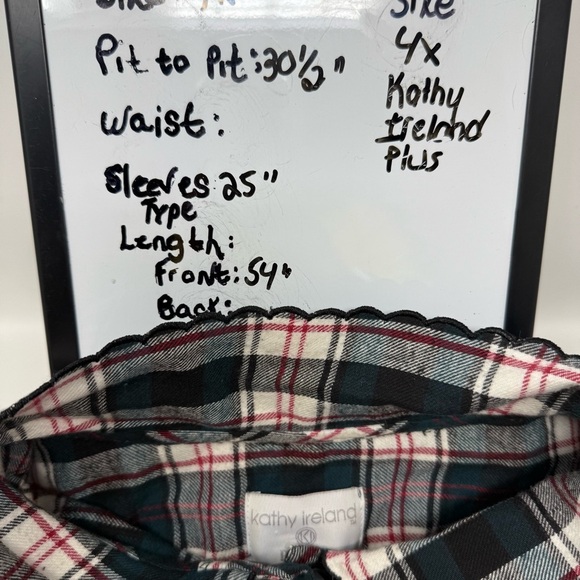 Size
Pit to Pit: 30 1/2"
Waist:
Sleeves 25"
Type
Length:
Front: 54"
Back:
Size
4x
Kathy
Ireland
Plus
kathy ireland